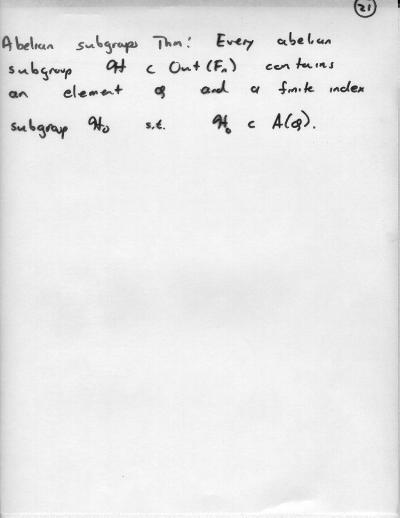 21
Abelian subgroups Thm: Every abelian
subgroup H ⊂ Out(Fn) contains
an element φ and a finite index
subgroup H₀ s.t. H₀ ⊂ A(φ).